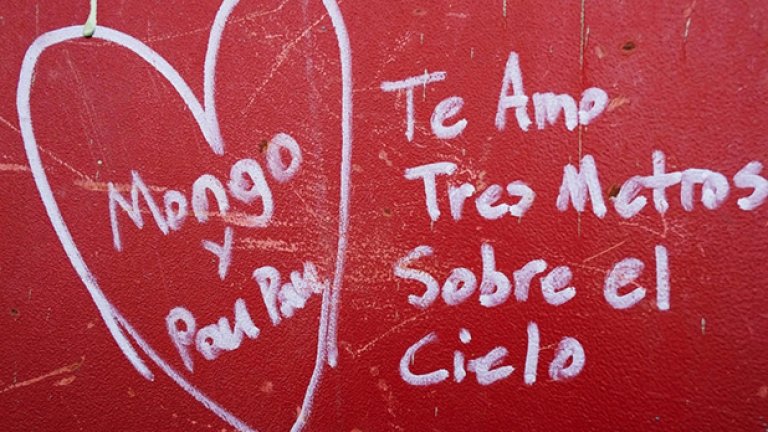 Mongo
y
Pau Pau
Te Amo
Tres Metros
Sobre el
Cielo